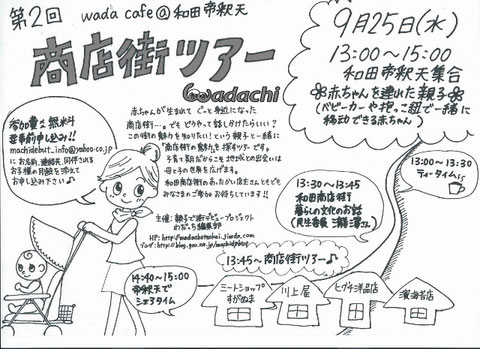 第2回
wada cafe@和田帝釈天
商店街ツアー
Gwadachi
9月25日(水)
13:00〜15:00
和田帝釈天集合
赤ちゃんを連れた親子
(ベビーカーや抱っこ紐で一緒に
移動できる赤ちゃん)
参加費:無料
要事前申し込み!!
machidebut_info@yahoo.co.jp
にお名前、連絡先、同伴される
お子様の月齢を添えて
お申し込み下さい
赤ちゃんが生まれて ぐっと身近になった
商店街…。でも どうやって話しかけたらいい?
この街の魅力を知りたい!という親子と一緒に
商店街の魅力を探すツアーです。
子育て期だからこそ 地域との出会いは
母と子の世界を広げます。
和田商店街のあったかい店主さんともども
みなさまのご参加お待ちしています!!
主催:親子で街デビュープロジェクト
わだっち編集部
13:00〜13:30
ティータイム
13:30〜13:45
和田商店街
暮らしの文化のお話
13:45〜商店街ツアー♪
14:40〜15:00
帝釈天で
シェアタイム
ミートショップ
すがぬま
川上屋
ヒグチ洋品店
濱海苔店